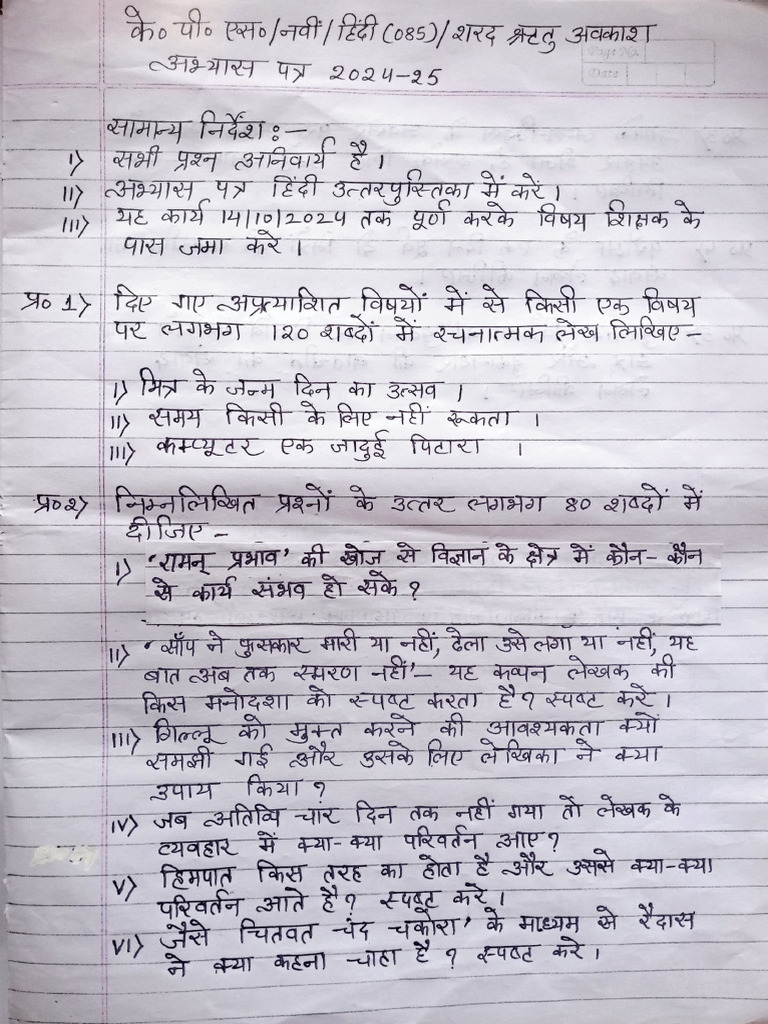 के० पी० एस०/नवीं/हिंदी(085)/शरद ऋतु अवकाश
अभ्यास पत्र 2024-25
सामान्य निर्देश:-
I> सभी प्रश्न अनिवार्य है ।
II> अभ्यास पत्र हिंदी उत्तरपुस्तिका में करें ।
III> यह कार्य 14/10/2024 तक पूर्ण करके विषय शिक्षक के
पास जमा करें ।
प्र० 1> दिए गए अप्रत्याशित विषयों में से किसी एक विषय
पर लगभग 120 शब्दों में रचनात्मक लेख लिखिए -
I> मित्र के जन्म दिन का उत्सव ।
II> समय किसी के लिए नहीं रूकता ।
III> कम्प्यूटर एक जादुई पिटारा ।
प्र०2> निम्नलिखित प्रश्नों के उत्तर लगभग 80 शब्दों में
दीजिए -
I> 'रामन् प्रभाव' की खोज से विज्ञान के क्षेत्र में कौन-कौन
से कार्य संभव हो सके ?
II> 'साँप ने फुसकार मारी या नहीं, ढेला उसे लगा या नहीं, यह
बात अब तक स्मरण नहीं' - यह कथन लेखक की
किस मनोदशा को स्पष्ट करता है ? स्पष्ट करें ।
III> गिल्लू को मुक्त करने की आवश्यकता क्यों
समझी गई और उसके लिए लेखिका ने क्या
उपाय किया ?
IV> जब अतिथि चार दिन तक नहीं गया तो लेखक के
व्यवहार में क्या-क्या परिवर्तन आए ?
V> हिमपात किस तरह का होता है और उससे क्या-क्या
परिवर्तन आते है ? स्पष्ट करें ।
VI> जैसे चितवत चंद चकोरा' के माध्यम से रैदास
ने क्या कहना चाहा है ? स्पष्ट करें ।